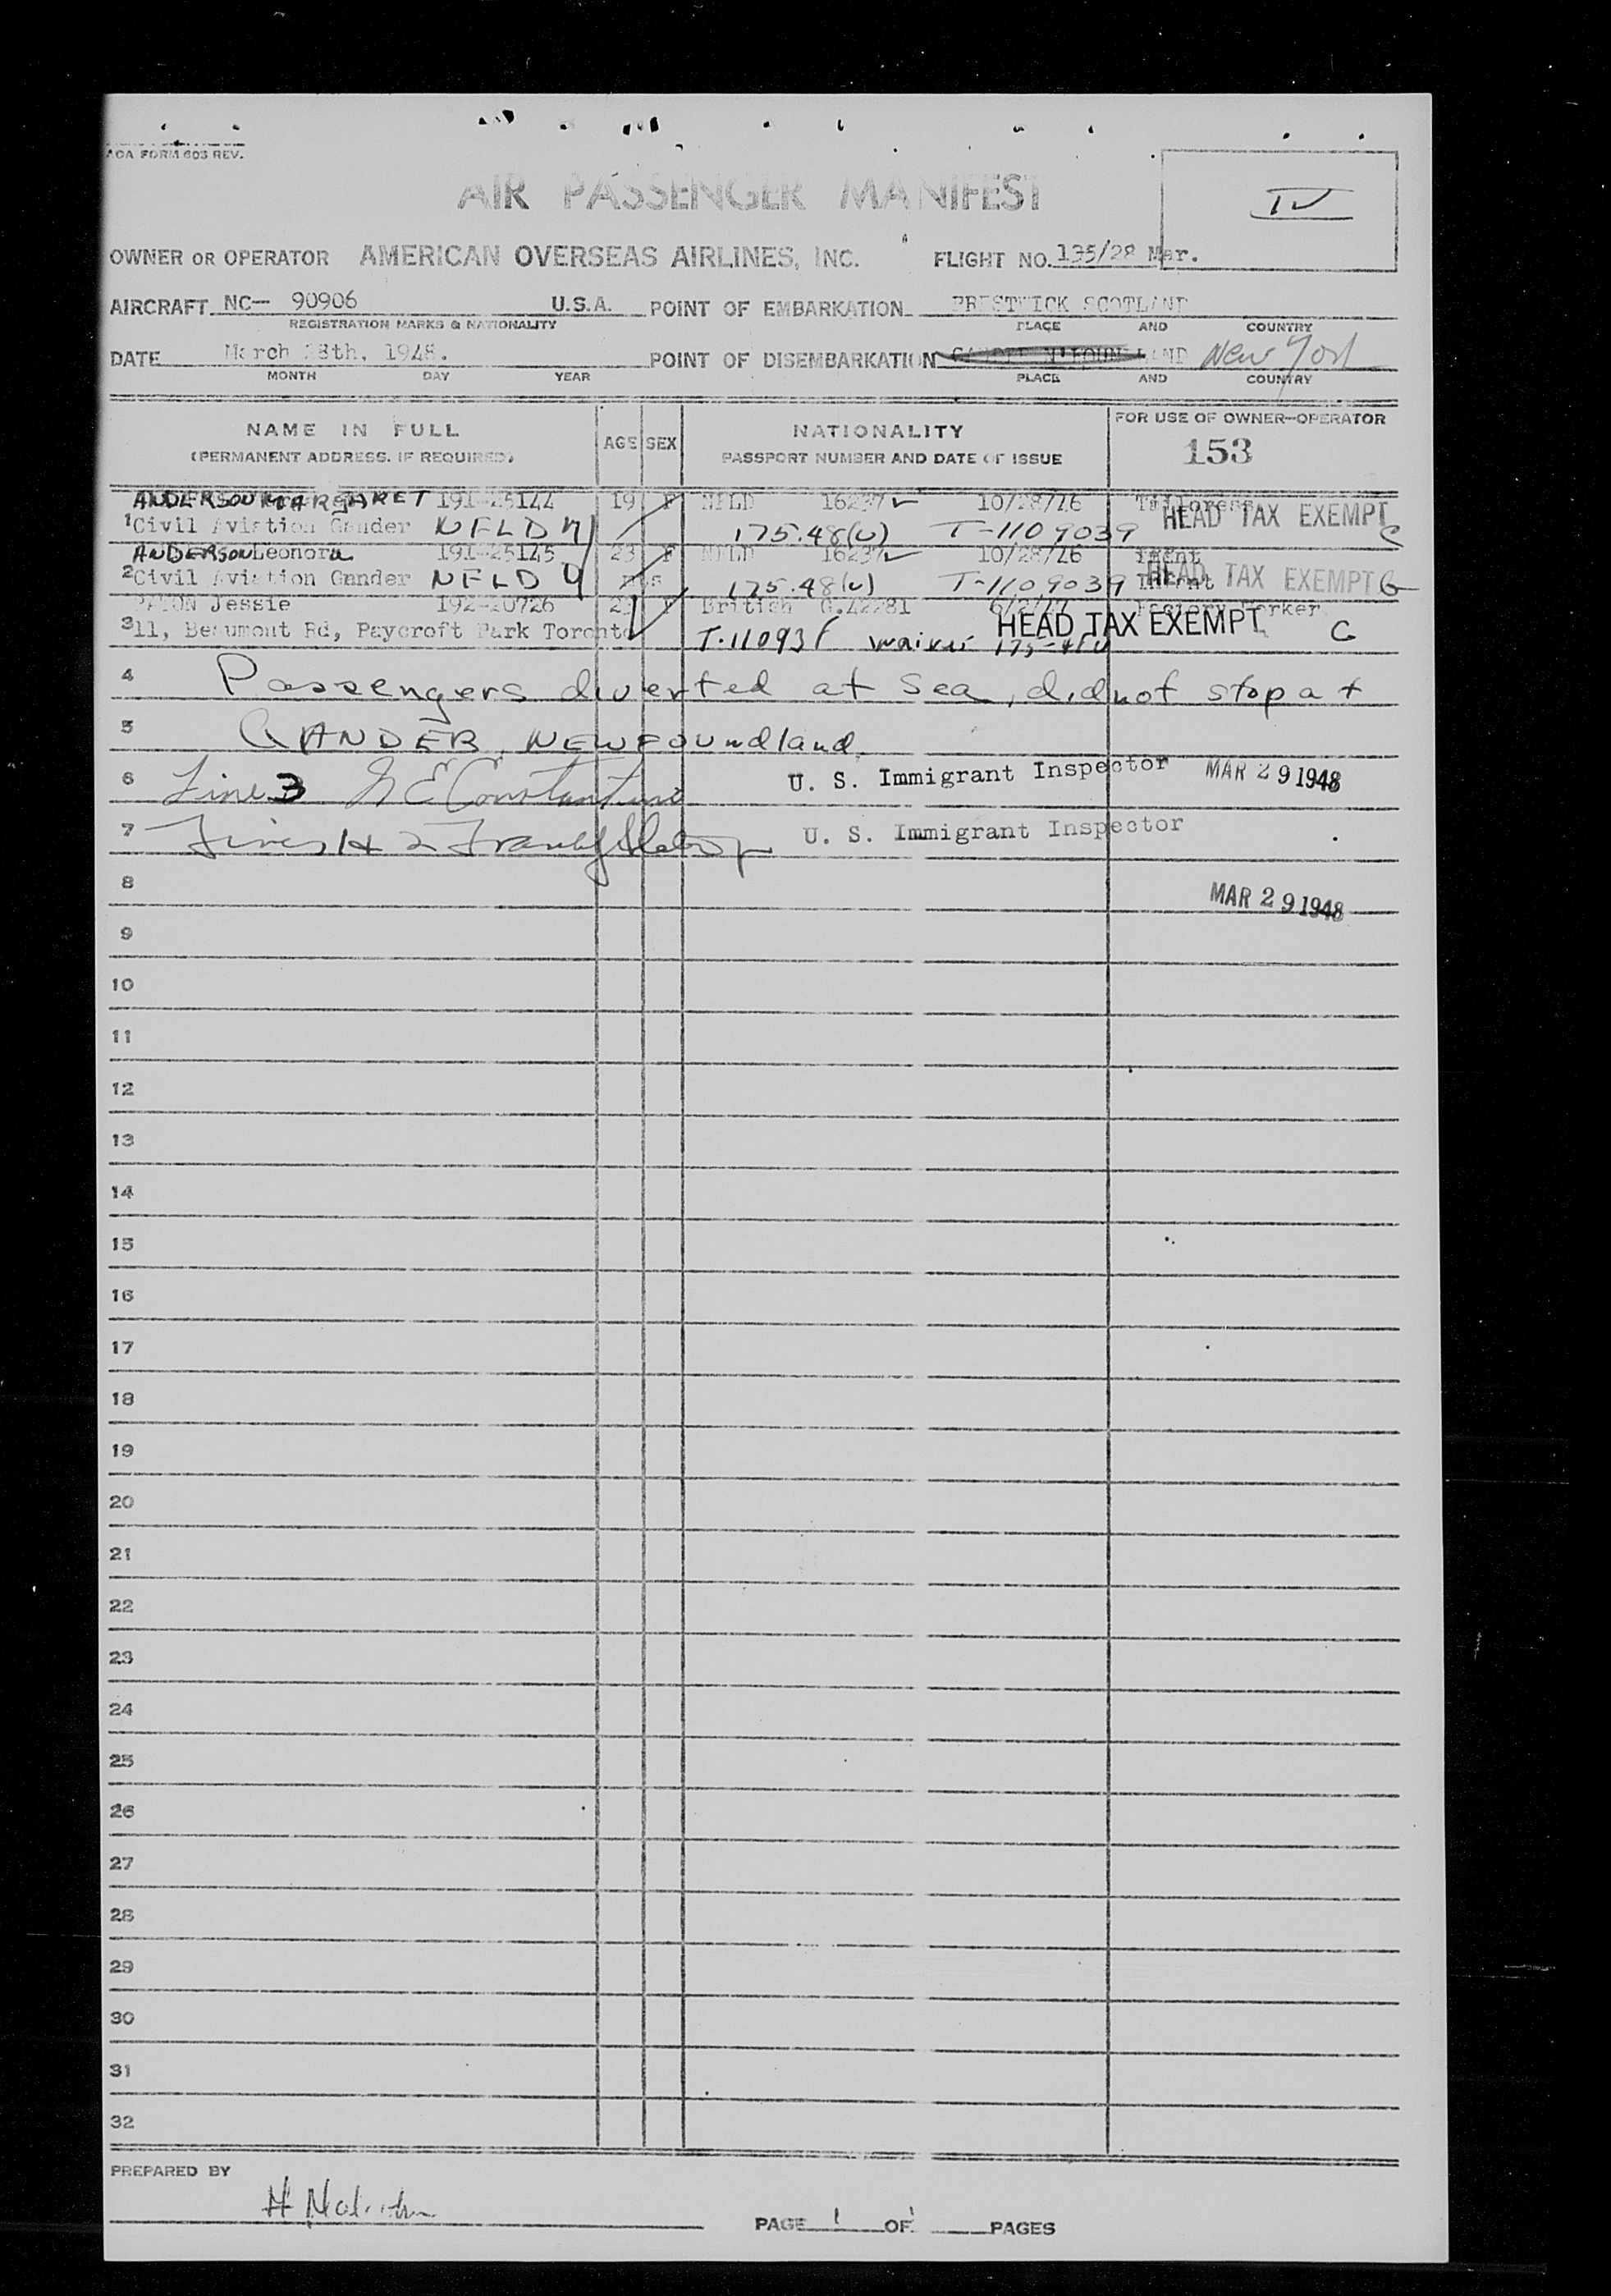 AOA FORM 603 REV.
AIR PASSENGER MANIFEST
IV
OWNER OR OPERATOR AMERICAN OVERSEAS AIRLINES, INC. FLIGHT NO. 135/28 Mar.
AIRCRAFT NC— 90906 U.S.A. POINT OF EMBARKATION PRESTWICK SCOTLAND
REGISTRATION MARKS & NATIONALITY PLACE AND COUNTRY
DATE March 28th, 1948. POINT OF DISEMBARKATION New York
MONTH DAY YEAR PLACE AND COUNTRY
NAME IN FULL AGE SEX NATIONALITY FOR USE OF OWNER-OPERATOR
(PERMANENT ADDRESS, IF REQUIRED) PASSPORT NUMBER AND DATE OF ISSUE 153
ANDERSON MARGARET 191-25144 19 F NFLD 16237 10/28/46 Tailoress
1 Civil Aviation Gander NFLD 175.48(U) T-1109039 HEAD TAX EXEMPT
ANDERSON Leonora 191-25145 23 F NFLD 16237 10/28/46
2 Civil Aviation Gander NFLD 175.48(U) T-1109039 HEAD TAX EXEMPT G
Jessie 192-20726 F British G.42281 6/2/47 Factory Worker
3 11, Beaumont Rd, Paycroft Park Toronto waiver HEAD TAX EXEMPT G
4 Passengers diverted at sea, did not stop at
5 GANDER, NEWFOUNDland.
6 Line 3 G E Constantine U. S. Immigrant Inspector MAR 29 1948
7 Lines 1 & 2 U. S. Immigrant Inspector
8 MAR 29 1948
9
10
11
12
13
14
15
16
17
18
19
20
21
22
23
24
25
26
27
28
29
30
31
32
PREPARED BY
PAGE 1 OF 1 PAGES